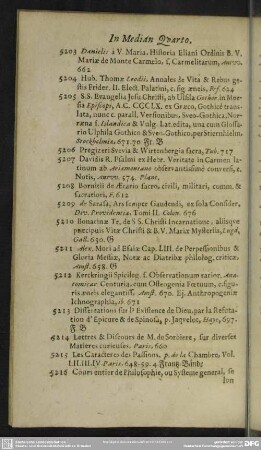 In Median Quarto.
5203 Danielis à V. Maria. Historia Eliani Ordinis B. V.
Mariæ de Monte Carmelo. C. Carmelitarum,
662
5204 Hub. Thomæ Leodii. Annales de Vita & Rebus ge-
stis Frider. II. Elect. Palatini, c. fig. æneis, Frf. 624
5205 S.S. Evangelia Jesu Christi, ab Ulfila
Episcopo, A.C. CCCLX. ex Græco, Gothicè trans-
lata, nunc c. parall. Versionibus, Sveo-Gothica, Norr-
æna s. Islandica & Vulg. Latedita, una cum Glossa-
rio Ulphila Gothico & Sveo-Gothico, per Stiernhielm.
Stockholmiæ, 671. 70 Fr. B
5206 Pregizeri Svevia & Wirtembergia sacra, Tub. 717
5207 Davidis R. Psalmi ex Hebr. Veritate in Carmen la-
tinum ab observantissimè conversi, c.
Notis, 574. Plant.
5208 Bornitii de Ærario sacro, civili, militari, comm. &
sacratiori, ib. 612
5209 de Sarasa, Ars semper Gaudendi, ex sola Consider.
Div. Providentiæ. Tomi II. Colon. 676
5210 Bonacinæ Te, de S. S. Christi Incarnatione, aliisque
præcipuis Vitæ Christi & B. V. Mariæ Mysteriis, Lugd.
Gall. 630. G
5211 Alex. Mori ad Esaiæ Cap. LIII. de Perpessionibus &
Gloria Messiæ, Notæ ac Diatribæ philolog. criticæ.
Amst. 658. G
5212 Kerckringii Spicileg. f. Observationum rarior. Ana-
tomicar. Centuria, cum Osteogenia Fœtuum, c. figu-
ris æneis elegantiss. Amst. 670. Ej. Anthropogeniæ
Ichnographia, ib. 671
5213 Dissertations sur l'Existence de Dieu, par la Refuta-
tion d'Epicure & de Spinosa, p. Jaqvelot, Haye, 697.
F. B
5214 Lettres & Discours de M. de Sorbiere, sur diverses
Matieres curieuses. Paris. 660
5215 Les Caracteres des Passions, p. de la Chambre, Vol.
I.II.III.IV. Paris. 648-59. 4. Frantz-Bände
5216 Cours entier de Philosophie, ou Systeme general, se
lon